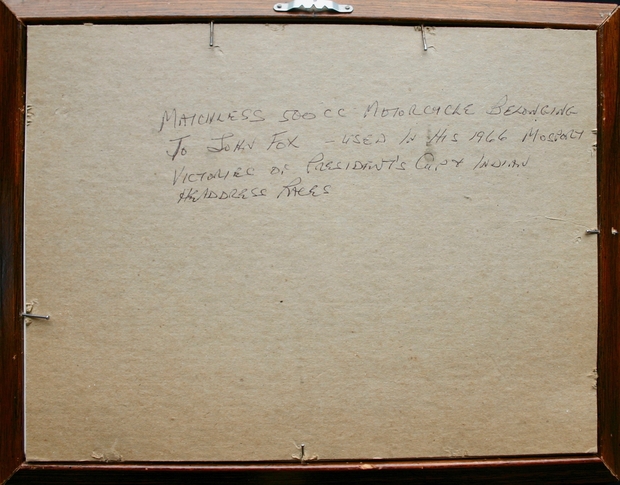 MATCHLESS 500CC MOTORCYCLE BELONGING
TO JOHN FOX - USED IN HIS 1966 MOSPORT
VICTORIES OF PRESIDENT'S CUP & INDIAN
HEADDRESS RACES